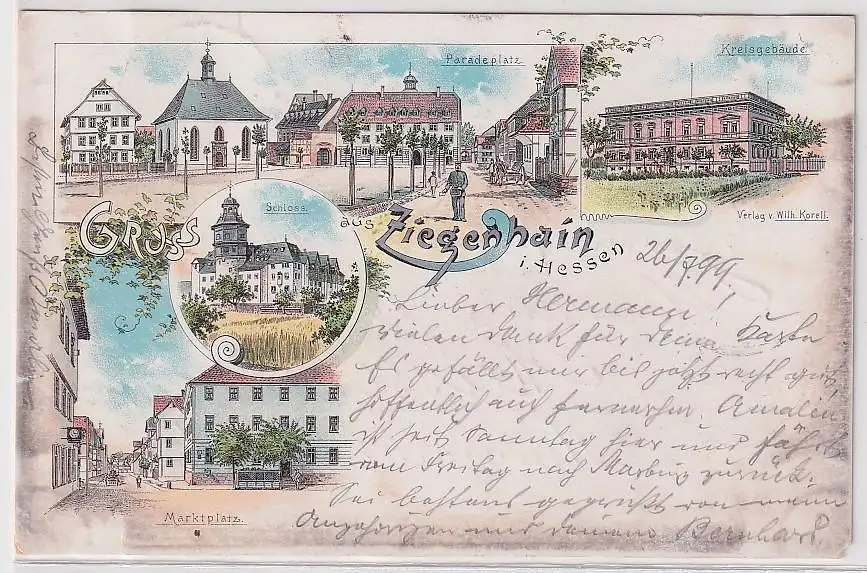 Paradeplatz
Kreisgebäude
Verlag v. Wilh. Korell.
Schloss.
GRUSS aus Ziegenhain
i. Hessen
26/7 99
Lieber Hermann!
vielen dank für deine Karte
Es gefällt mir bis jetzt recht gut,
hoffentlich auch fernerhin. Amalia
ist seit Sonntag hier und fährt
am Freitag nach Marburg zurück.
Sei bestens gegrüßt von meinen
Angehörigen und deinem Bernhard.
Marktplatz.